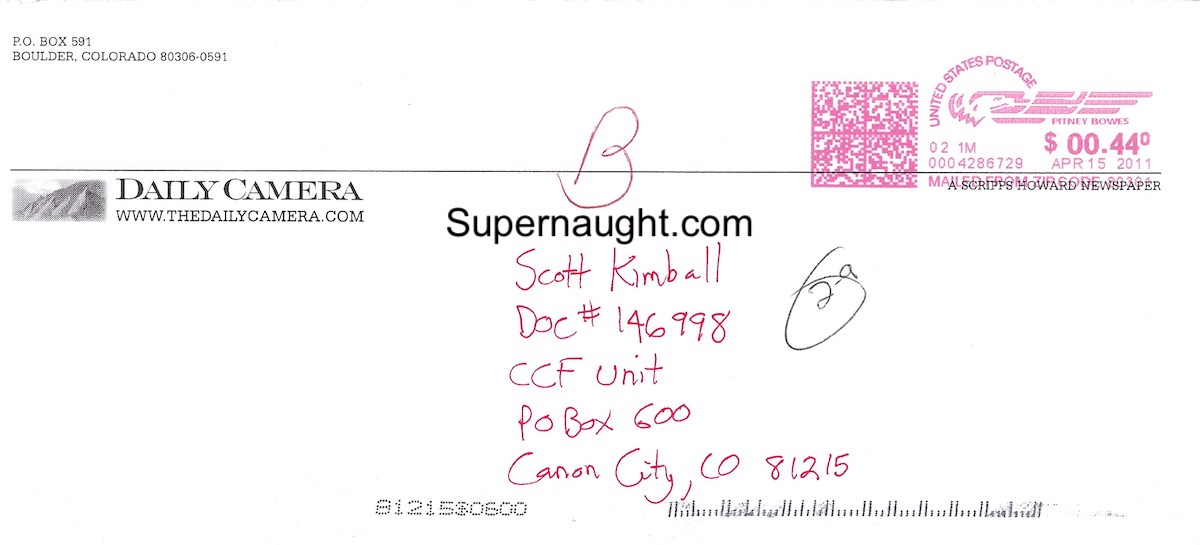 P.O. BOX 591
BOULDER, COLORADO 80306-0591
UNITED STATES POSTAGE
PITNEY BOWES
02 1M
$ 00.44⁰
0004286729
APR 15 2011
MAILED FROM ZIP CODE
A SCRIPPS HOWARD NEWSPAPER
B
DAILY CAMERA
WWW.THEDAILYCAMERA.COM
Supernaught.com
Scott Kimball
Doc# 146998
CCF Unit
PO Box 600
Canon City, CO 81215
81215$0600